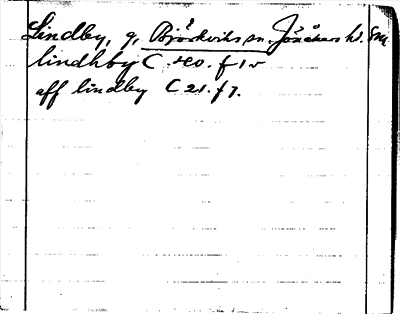 Lindby, g, Björkviks sn. Jönåkers hd. Sm
lindhby C 20. f 1 v
aff lindby C 21. f 7.